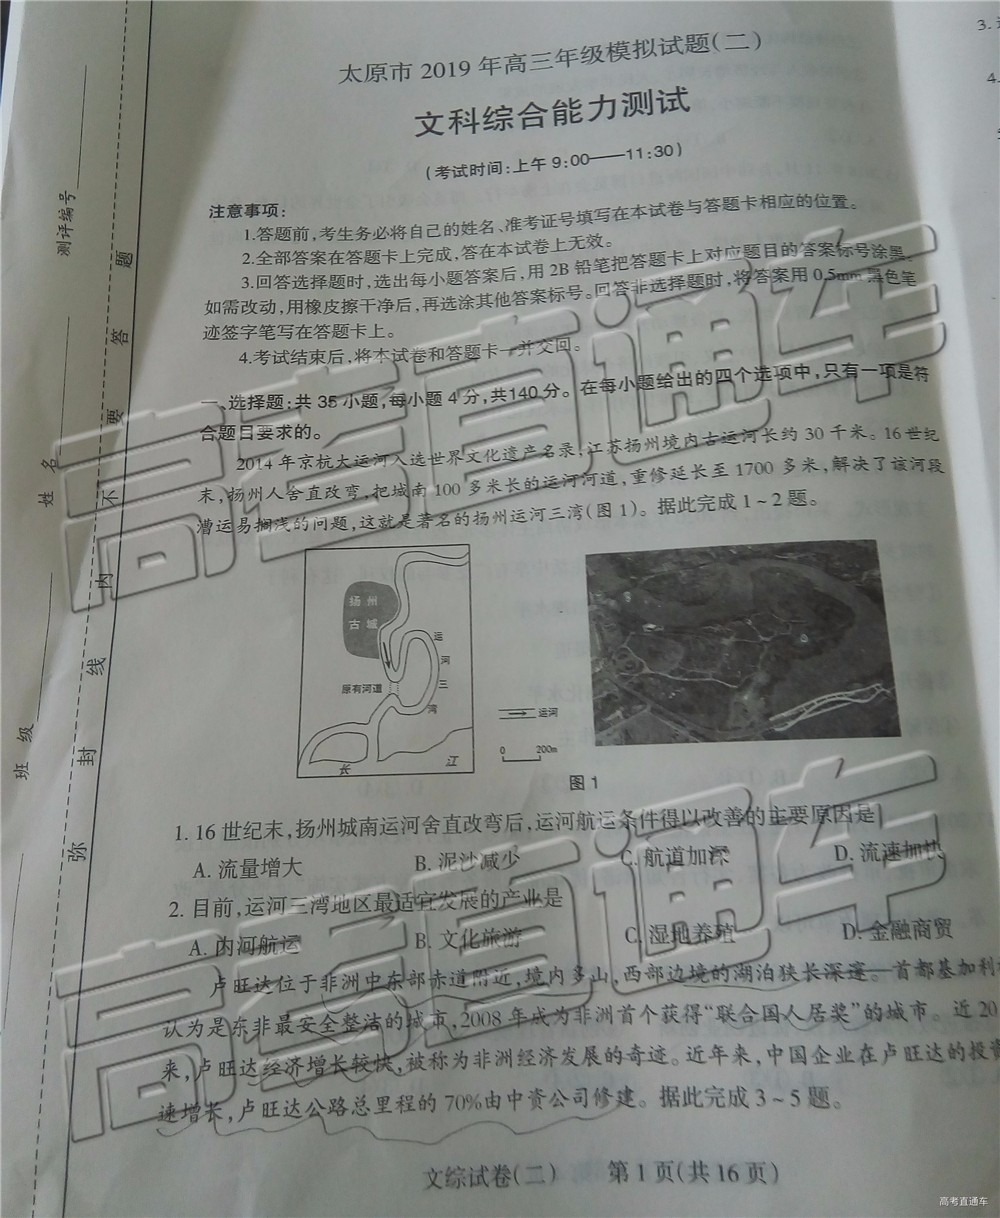 太原市 2019 年高三年级模拟试题(二)
文科综合能力测试
(考试时间:上午 9:00——11:30)
注意事项:
1.答题前,考生务必将自己的姓名、准考证号填写在本试卷与答题卡相应的位置。
2.全部答案在答题卡上完成,答在本试卷上无效。
3.回答选择题时,选出每小题答案后,用 2B 铅笔把答题卡上对应题目的答案标号涂黑。
如需改动,用橡皮擦干净后,再选涂其他答案标号。回答非选择题时,将答案用 0.5mm 黑色笔
迹签字笔写在答题卡上。
4.考试结束后,将本试卷和答题卡一并交回。
一、选择题:共 35 小题,每小题 4 分,共140 分。在每小题给出的四个选项中,只有一项是符
合题目要求的。
2014 年京杭大运河入选世界文化遗产名录,江苏扬州境内古运河长约 30 千米。16 世纪
末,扬州人舍直改弯,把城南 100 多米长的运河河道,重修延长至 1700 多米,解决了该河段
漕运易搁浅的问题,这就是著名的扬州运河三湾(图 1)。据此完成 1~2 题。
扬州
古城
运
河
三
湾
原有河道
长
江
运河
0 200m
图 1
1. 16 世纪末,扬州城南运河舍直改弯后,运河航运条件得以改善的主要原因是
A. 流量增大 B. 泥沙减少 C. 航道加深 D. 流速加快
2. 目前,运河三湾地区最适宜发展的产业是
A. 内河航运 B. 文化旅游 C. 湿地养殖 D. 金融商贸
卢旺达位于非洲中东部赤道附近,境内多山,西部边境的湖泊狭长深邃。首都基加利
认为是东非最安全整洁的城市,2008 年成为非洲首个获得“联合国人居奖”的城市。近 20
来,卢旺达经济增长较快,被称为非洲经济发展的奇迹。近年来,中国企业在卢旺达的投资
速增长,卢旺达公路总里程的 70%由中资公司修建。据此完成 3~5 题。
文综试卷(二) 第 1 页(共 16 页)
测评编号
姓名
班级
弥 封 线 内 不 要 答 题
3.
4.
高考直通车
高考直通车
高考直通车